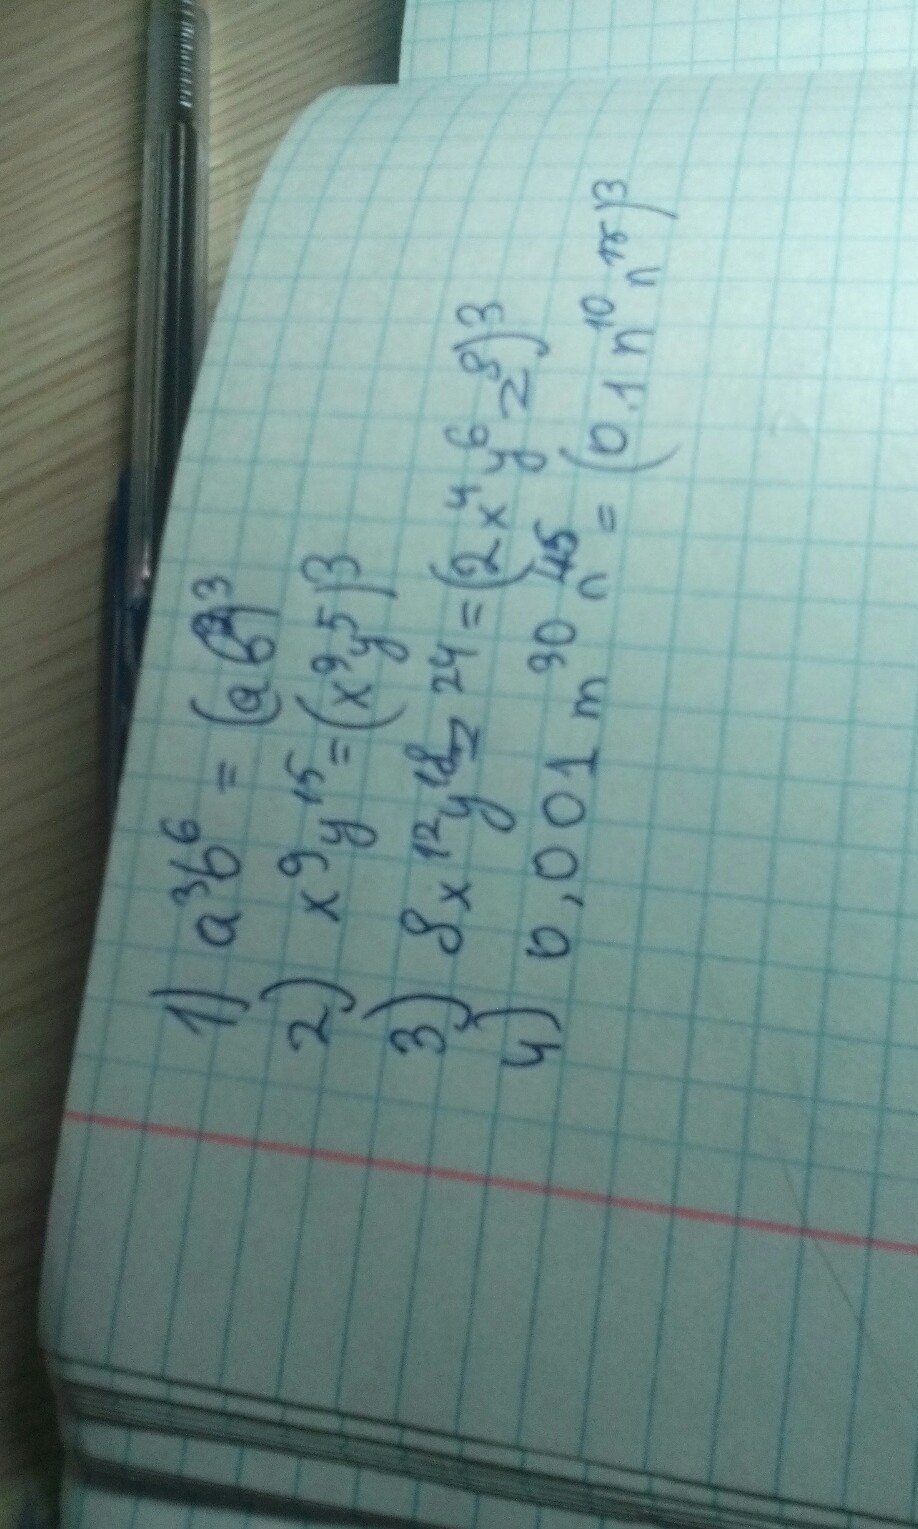 1) a³b⁶ = (ab²)³
2) x⁹y¹⁵ = (x⁹y⁵)3
3) 8x¹²y¹⁸z²⁴ = (2x⁴y⁶z⁸)³
4) 0,001m³⁰n⁴⁵ = (0.1n¹⁰n¹⁵)³